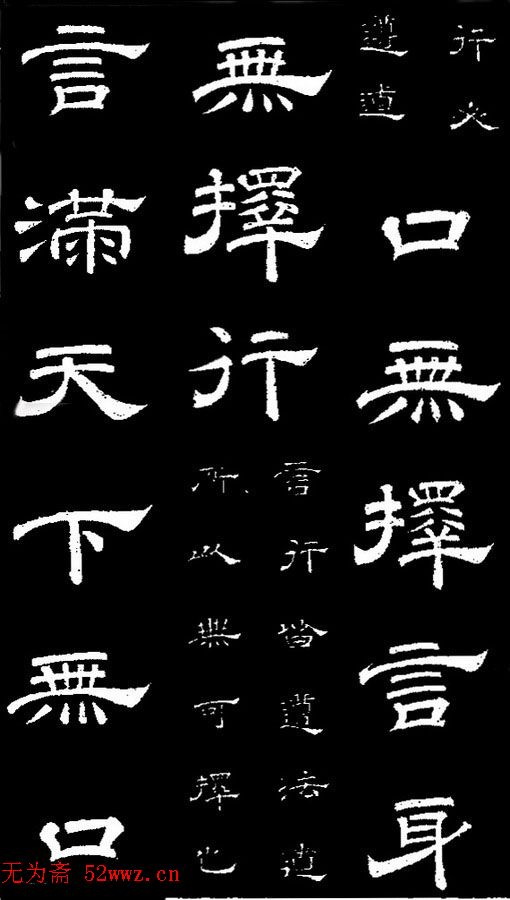 行必
遵道
口無擇言身
無擇行
言行皆遵法道
所以無可擇也
言滿天下無口
无为斋 52wwz.cn